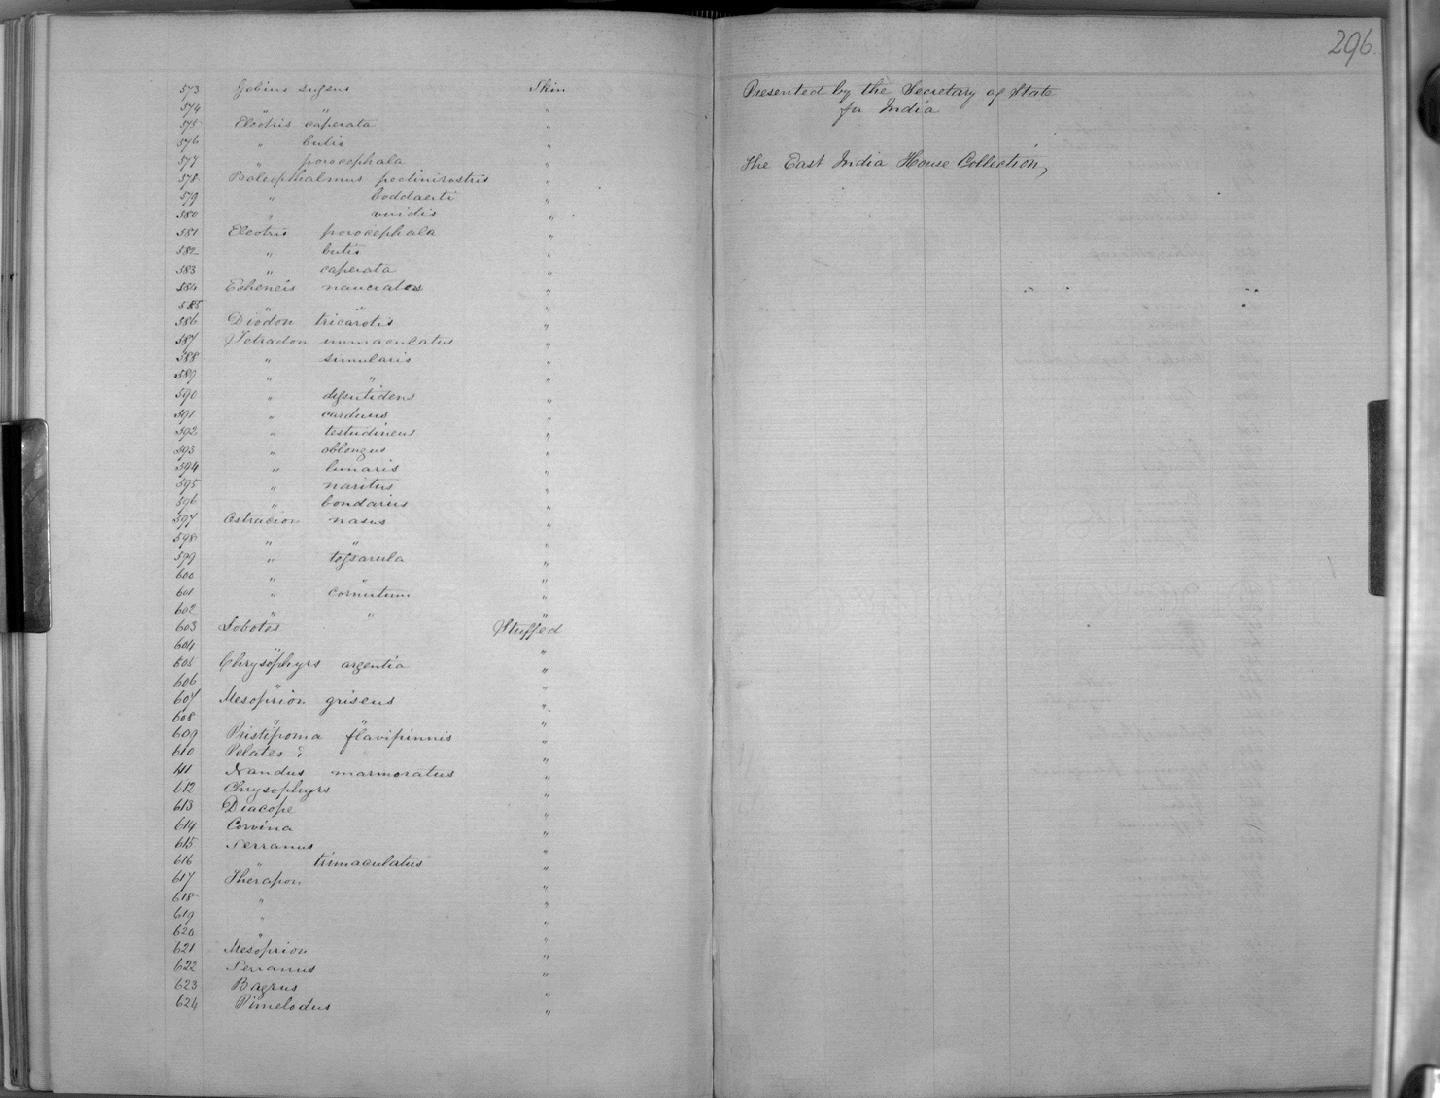 296.
573 Gobius sugens Skin
574 " " "
575 Eleotris caperata "
576 " butis "
577 " porocephala "
578 Boleophthalmus pectinirostris "
579 " boddaerti "
580 " viridis "
581 Eleotris porocephala "
582 " butis "
583 " caperata "
584 Echeneis naucrates "
585 " " "
586 Diodon "
587 Tetradon immaculatus "
588 " simularis "
589 " " "
590 " "
591 " "
592 " testudineus "
593 " oblongus "
594 " lunaris "
595 " naritus "
596 " bondarius "
597 Ostracion nasus "
598 " " "
599 " "
600 " " "
601 " cornutum "
602 " " "
603 Lobotes Stuffed
604 " "
605 Chrysophrys argentia "
606 " "
607 Mesoprion griseus "
608 " " "
609 Pristipoma flavipinnis "
610 Pelates ? "
611 Nandus marmoratus "
612 Chrysophrys "
613 Diacope "
614 Corvina "
615 Serranus "
616 " trimaculatus "
617 Therapon "
618 " "
619 " "
620 " "
621 Mesoprion "
622 Serranus "
623 Bagrus "
624 Pimelodus "
Presented by the Secretary of State
for India
The East India House Collection,